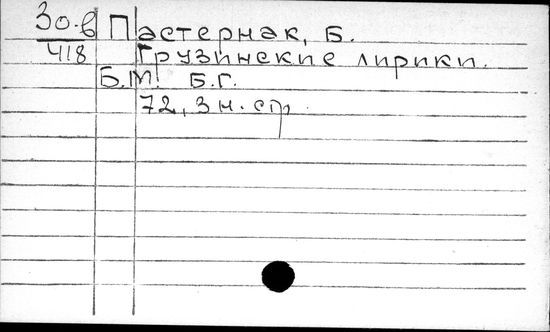 30.в Пастернак, Б.
418 Грузинские лирики.
Б.М. Б.Г.
72, 3 н. стр.